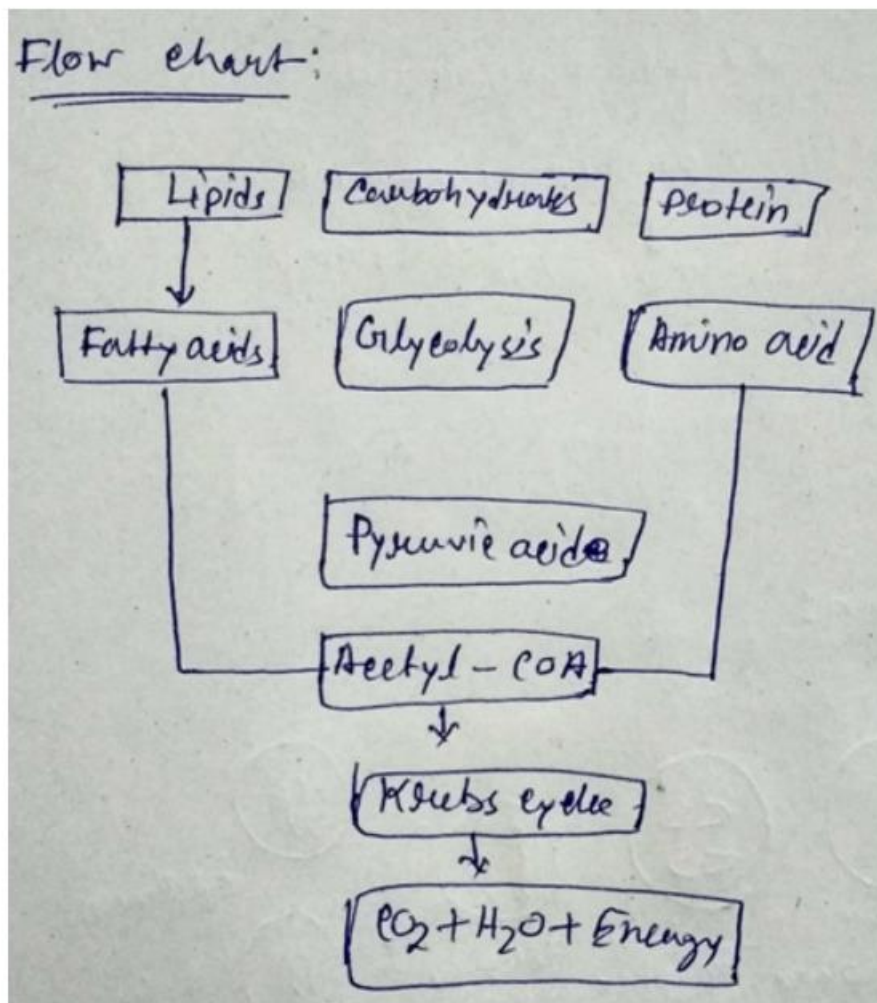 Flow chart:
Lipids Carbohydrates Protein
Fatty acids Glycolysis Amino acid
Pyruvic acid
Acetyl - COA
Krebs cycle
CO2 + H2O + Energy